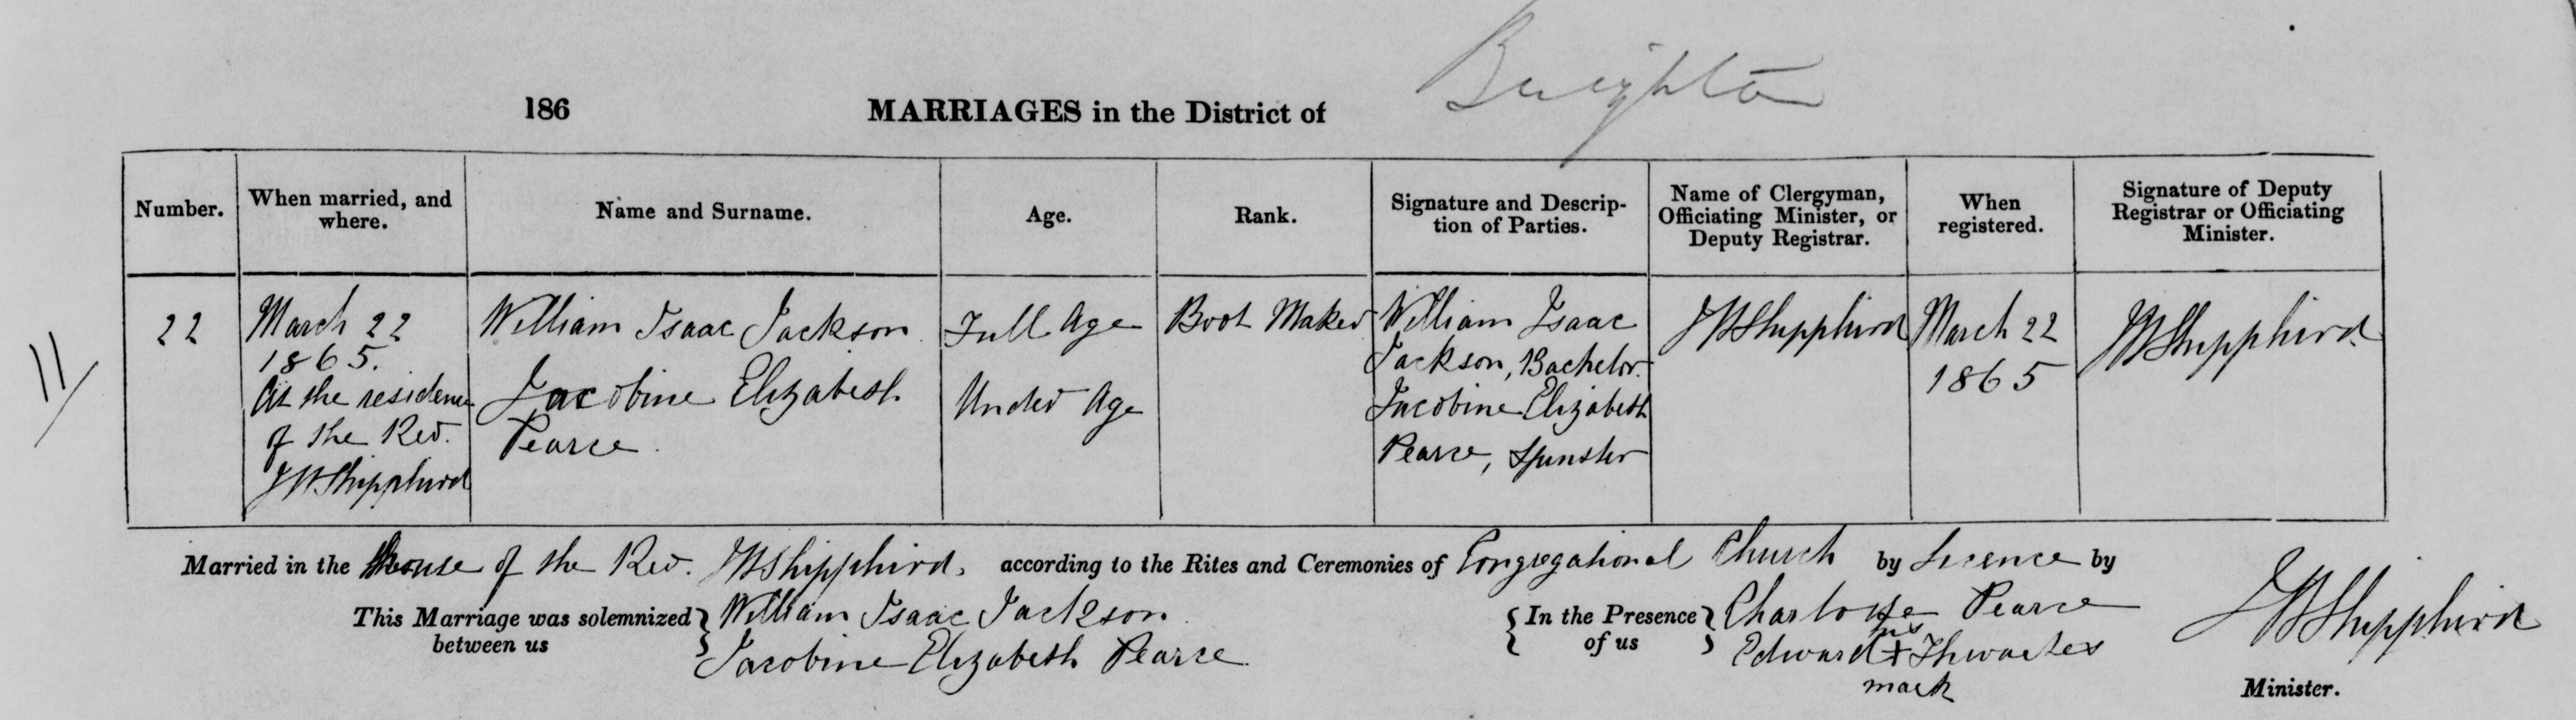 Brighton
186 MARRIAGES in the District of
Number. When married, and where. Name and Surname. Age. Rank. Signature and Description of Parties. Name of Clergyman, Officiating Minister, or Deputy Registrar. When registered. Signature of Deputy Registrar or Officiating Minister.
11/
22
March 22
1865.
At the residence
of the Rev.
JWShipphird
William Isaac Jackson
Jacobine Elizabeth
Pearce.
Full Age
Under Age
Boot Maker
William Isaac
Jackson, Bachelor.
Jacobine Elizabeth
Pearce, Spinster
JWShipphird
March 22
1865
JWShipphird.
Married in the house of the Rev. JWShipphird. according to the Rites and Ceremonies of Congregational Church by Licence by
This Marriage was solemnized between us
William Isaac Jackson
Jacobine Elizabeth Pearce
In the Presence of us
Charlotte Pearce
Edward his + mark Thwaites
JWShipphird
Minister.